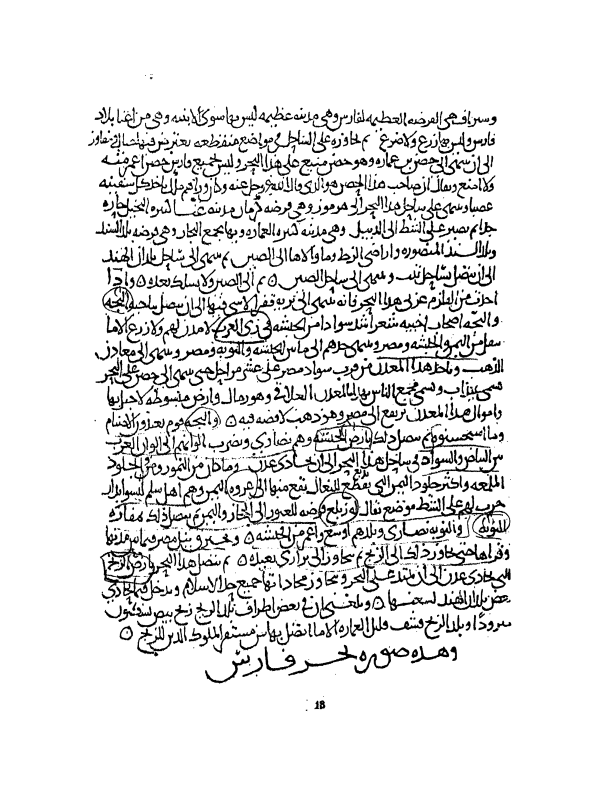 وسيراف هي الفرضه العظيمه لفارس وهي مدينه عظيمه ليس بها سوى الابنيه
ثم على الساحل في مواضع
الى ان ينتهى الى حصن بن عماره وهو حصن منيع على هذا البحر وليس بجميع فارس حصن امنع منه
ويقال ان صاحب هذا الحصن هو الذي قال الله
على ساحل هذا البحر الى هرموز وهي فرضه كرمان مدينه كثيره النخيل حاره
جدا ثم تصير على الشط الى الديبل وهي مدينه كثيره العماره وبها مجمع التجار وهي فرضه بلاد السند
وبلاد السند المنصوره واراضي الزط وما والاها الى الصين ثم ينتهى الى ساحل بلدان الهند
الى ان يتصل بساحل تبت وينتهى الى ساحل الصين ثم الى الصين ولا يسلك بعده واذا
اخذت من القلزم غربى هذا البحر فانه ينتهى الى بريه قفر لا شى فيها الى ان يتصل بباديه البجه
والبجه اصحاب اخبيه شعر اشد سوادا من الحبشه في زي العرب لا مدن لهم ولا زرع الا ما
ينقل من اليمن والحبشه ومصر وينتهى حدهم الى ما بين الحبشه والنوبه ومصر وينتهى الى معادن
الذهب وياخذ هذا المعدن من قرب سواد مصر على عشر مراحل حتى ينتهى الى حصن على البحر
يسمى عيذاب ويسمى مجمع الناس بهذا المعدن العلاقي وهو رمال وارض مبسوطه لا جبل بها
واموال هذا المعدن ترتفع الى مصر وهو ذهب لا فضه فيه والبجه قوم يعبدون الاصنام
وما استحسنوه ثم يتصل ذلك بارض الحبشه وهم نصارى وتضرب الوانهم الى الوان العرب
بين البياض والسواد في ساحل هذا البحر الى ان يحاذى عدن وما كان من النمور ومن الجلود
الملمعه واكثر جلود اليمن التي تدبغ للنعال تقع منها الى عدوه اليمن وهم اهل سلم ليسوا بدار
حرب لهم على الشط موضع يقال له زيلع فرضه للعبور الى الحجاز واليمن ثم يتصل ذلك مفازه
النوبه والنوبه نصارى وبلدهم اوسع واعم من الحبشه ويخترق نيل مصر فيما بين مدنها
وقراها حتى يجاوز ذلك الى الزنج ثم يتجاوز الى براري بعيده ثم يتصل هذا البحر بارض الزنج
التي تحاذى عدن الى ان يمتد على البحر ويتجاوز محاذاتها جميع حد الاسلام ويدخل في محاذى
بعض بلدان الهند لسعتها وبلغني ان في بعض اطراف بلد الزنج زنج بيض يسكنون
وبلد الزنج قشف قليل العماره الا ما اتصل بها من مستقر الملوك الذين للزنج
وهذه صوره بحر فارس
18